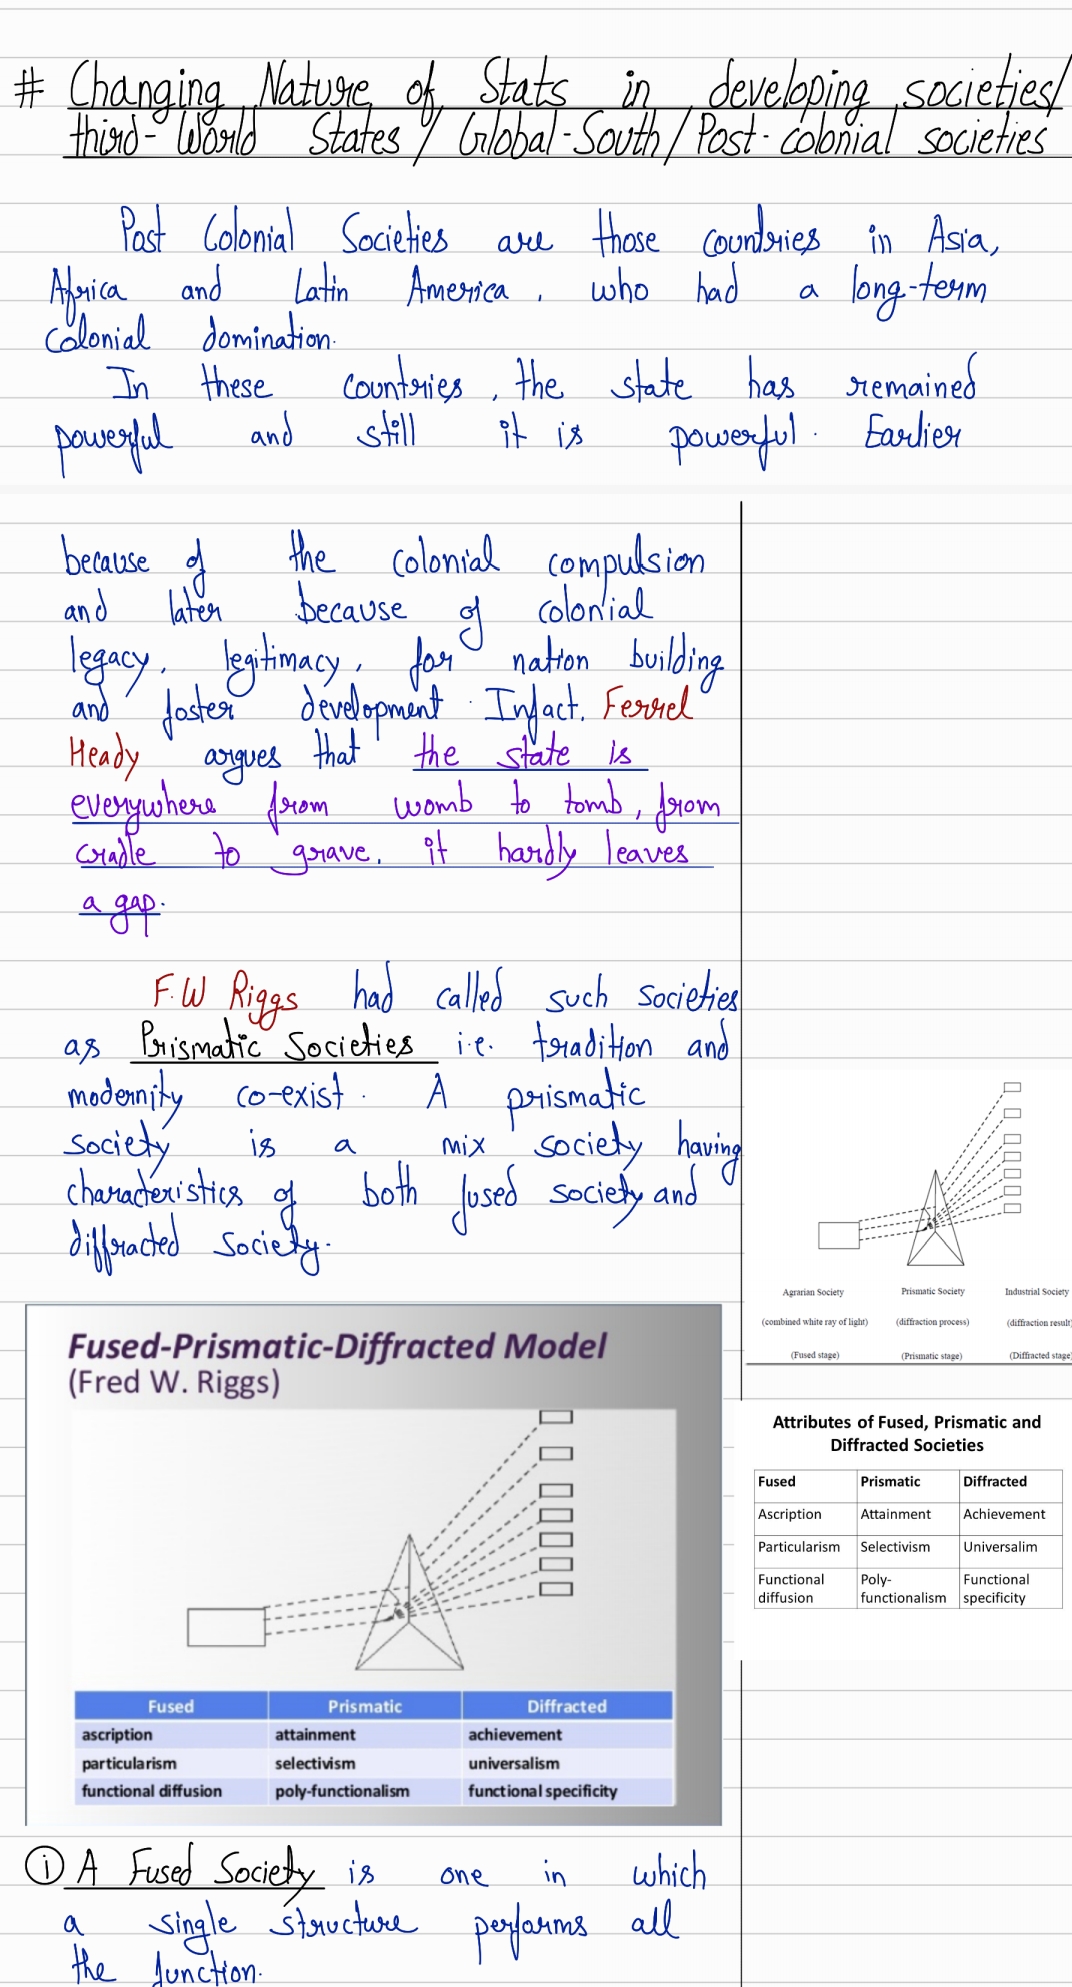 # Changing Nature of Stats in developing societies/
third-World States / Global-South / Post-colonial societies
Post Colonial Societies are those countries in Asia,
Africa and Latin America, who had a long-term
colonial domination.
In these countries, the state has remained
powerful and still it is powerful. Earlier
because of the colonial compulsion
and later because of colonial
legacy, legitimacy, for nation building
and foster development. Infact, Ferrel
Heady argues that the state is
everywhere from womb to tomb, from
cradle to grave, it hardly leaves
a gap.
F.W Riggs had called such societies
as Prismatic Societies i.e. tradition and
modernity co-exist. A prismatic
society is a mix society having
characteristics of both fused society and
diffracted society.
Agrarian Society Prismatic Society Industrial Society
(combined white ray of light) (diffraction process) (diffraction result)
(Fused stage) (Prismatic stage) (Diffracted stage)
Fused-Prismatic-Diffracted Model
(Fred W. Riggs)
Fused Prismatic Diffracted
ascription attainment achievement
particularism selectivism universalism
functional diffusion poly-functionalism functional specificity
Attributes of Fused, Prismatic and
Diffracted Societies
Fused Prismatic Diffracted
Ascription Attainment Achievement
Particularism Selectivism Universalim
Functional Poly- Functional
diffusion functionalism specificity
i A Fused Society is one in which
a single structure performs all
the function.